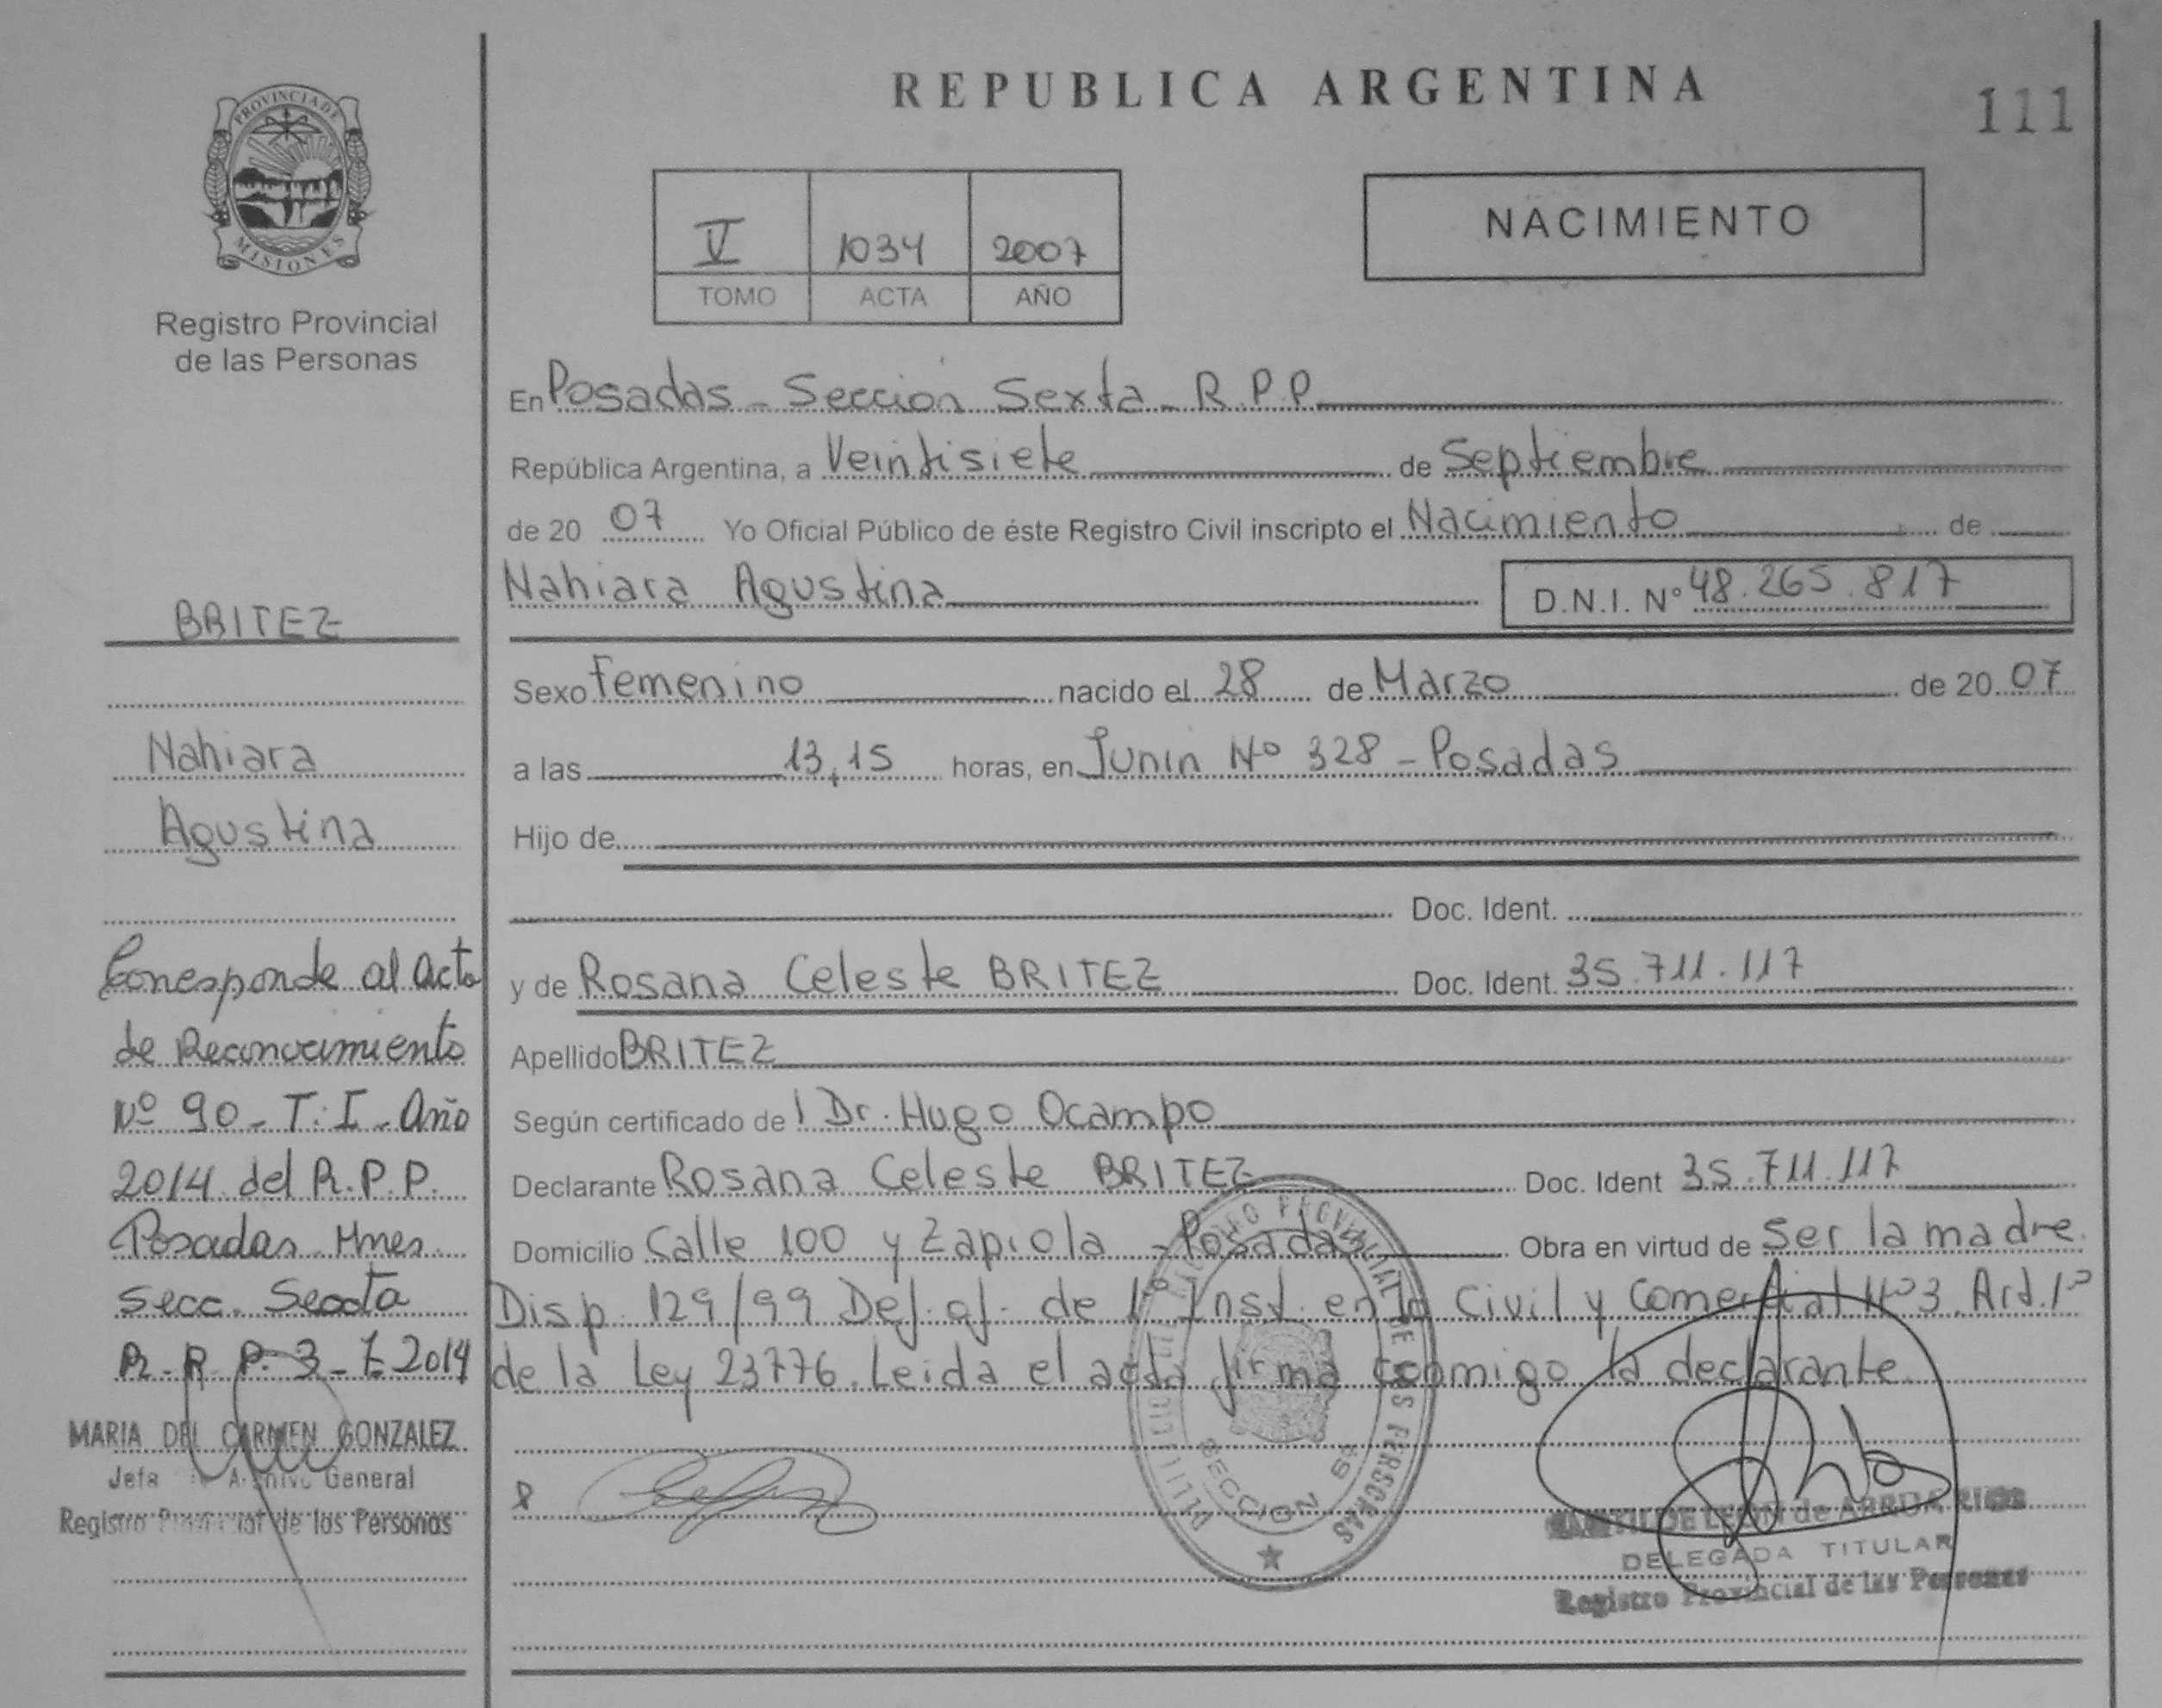 REPUBLICA ARGENTINA
111
PROVINCIA DE
MISIONES
Registro Provincial
de las Personas
V 1034 2007
TOMO ACTA AÑO
NACIMIENTO
En Posadas - Sección Sexta - R.P.P.
República Argentina, a Veintisiete de Septiembre
de 20 07 Yo Oficial Público de éste Registro Civil inscripto el Nacimiento de
Nahiara Agustina D.N.I. Nº 48.265.817
Sexo Femenino nacido el 28 de Marzo de 20 07
a las 13,15 horas, en Junin Nº 328 - Posadas
Hijo de
Doc. Ident.
y de Rosana Celeste BRITEZ Doc. Ident. 35.711.117
Apellido BRITEZ
Según certificado de l Dr. Hugo Ocampo
Declarante Rosana Celeste BRITEZ Doc. Ident 35.711.117
Domicilio Calle 100 y Zapiola - Posadas Obra en virtud de Ser la madre.
Disp. 129/99 Def. of. de 1º Inst. en lo Civil y Comercial Nº3. Art. 1º
de la Ley 23776. Leida el acta firma conmigo la declarante.
BRITEZ
Nahiara
Agustina
Corresponde al acta
de Reconocimiento
Nº 90 - T: I - Año
2014 del R.P.P.
Posadas Mnes.
Secc. Sexta
R.P.P. 3-7-2014
MARIA DEL CARMEN GONZALEZ
Jefa Archivo General
Registro Provincial de las Personas
REGISTRO PROVINCIAL DE LAS PERSONAS
SECCION
DE LEON de ARRUA RIOS
DELEGADA TITULAR
Registro Provincial de las Personas